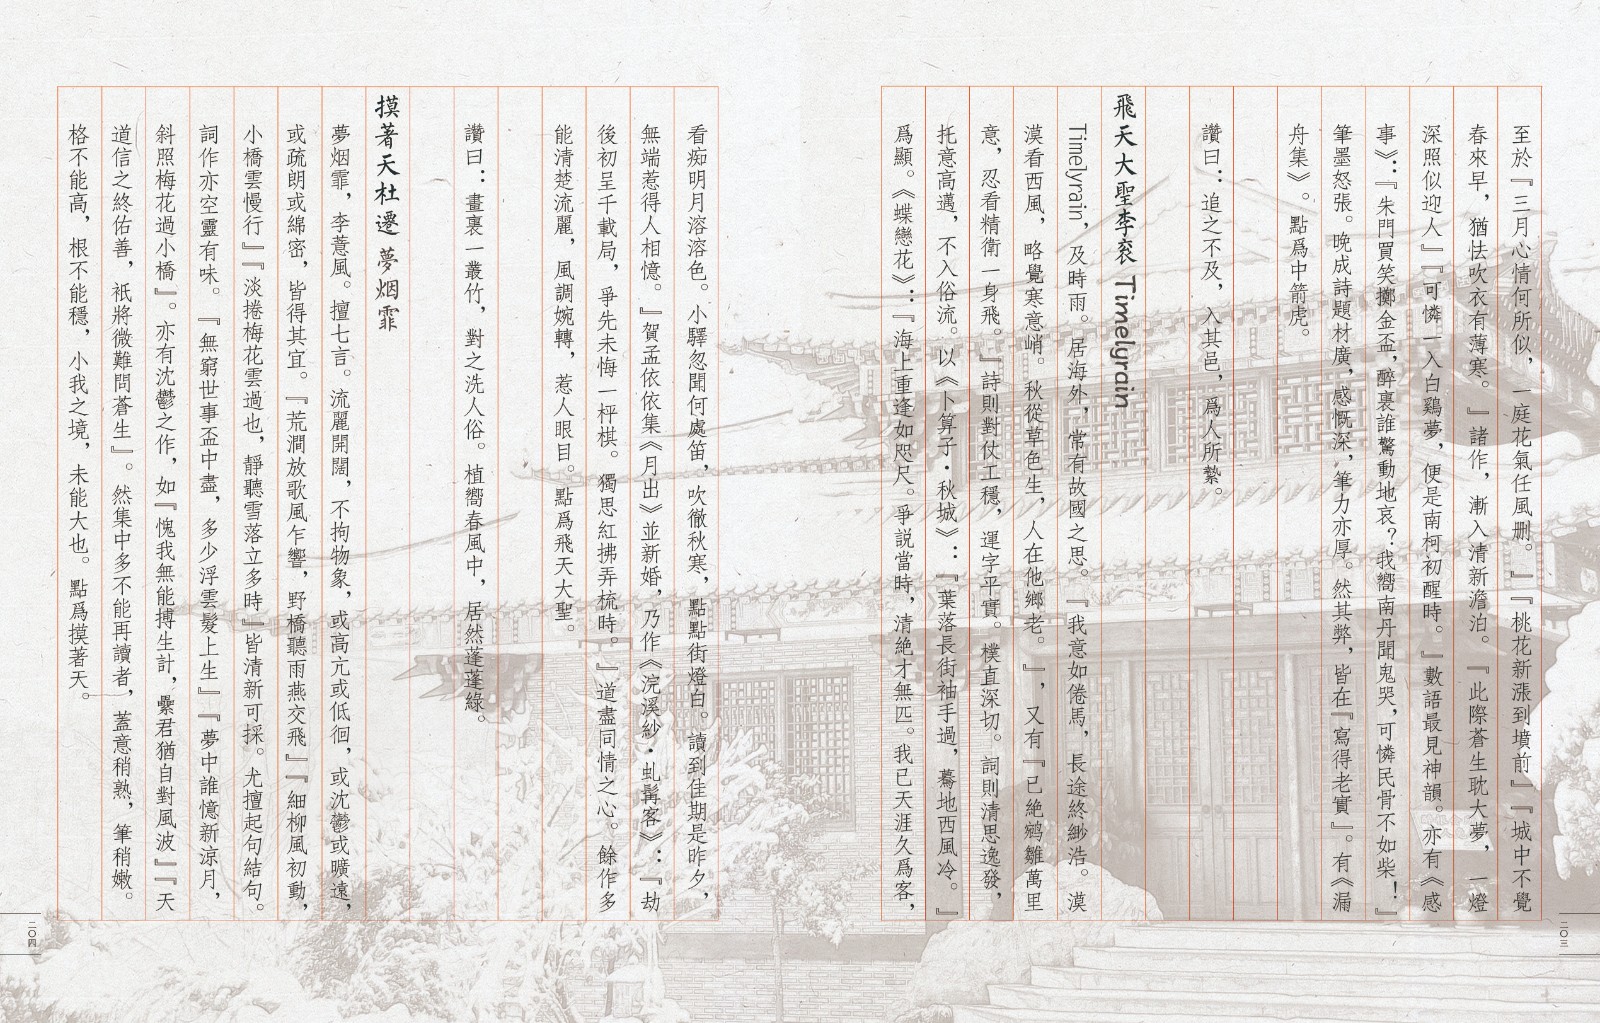 至於『三月心情何所似，一庭花氣任風刪。』『桃花新漲到墳前』『城中不覺
春來早，猶怯吹衣有薄寒。』諸作，漸入清新澹泊。『此際蒼生耽大夢，一燈
深照似迎人』『可憐一入白鷄夢，便是南柯初醒時。』數語最見神韻。亦有《感
事》：『朱門買笑擲金盃，醉裏誰驚動地哀？我嚮南丹聞鬼哭，可憐民骨不如柴！』
筆墨怒張。晚成詩題材廣，感慨深，筆力亦厚。然其弊，皆在『寫得老實』。有《漏
舟集》。點爲中箭虎。
讚曰：追之不及，入其邑，爲人所縶。
飛天大聖李衮 Timelyrain
Timelyrain，及時雨。居海外，常有故國之思。『我意如倦馬，長途終緲浩。漠
漠看西風，略覺寒意峭。秋從草色生，人在他鄉老。』，又有『已絶鹓雛萬里
意，忍看精衛一身飛。』詩則對仗工穩，運字平實。樸直深切。詞則清思逸發，
托意高邁，不入俗流。以《卜算子·秋城》：『葉落長街袖手過，驀地西風冷。』
爲顯。《蝶戀花》：『海上重逢如咫尺。爭説當時，清絶才無匹。我已天涯久爲客，
看痴明月溶溶色。小驛忽聞何處笛，吹徹秋寒，點點街燈白。讀到佳期是昨夕，
無端惹得人相憶。』賀孟依依集《月出》並新婚，乃作《浣溪紗·虬髯客》：『劫
後初呈千載局，爭先未悔一枰棋。獨思紅拂弄梳時。』道盡同情之心。餘作多
能清楚流麗，風調婉轉，惹人眼目。點爲飛天大聖。
讚曰：畫裏一叢竹，對之洗人俗。植嚮春風中，居然蓬蓬綠。
摸著天杜遷 夢烟霏
夢烟霏，李薏風。擅七言。流麗開闊，不拘物象，或高亢或低徊，或沈鬱或曠遠，
或疏朗或綿密，皆得其宜。『荒澗放歌風乍響，野橋聽雨燕交飛』『細柳風初動，
小橋雲慢行』『淡捲梅花雲過也，靜聽雪落立多時』皆清新可採。尤擅起句結句。
詞作亦空靈有味。『無窮世事盃中盡，多少浮雲髮上生』『夢中誰憶新涼月，
斜照梅花過小橋』。亦有沈鬱之作，如『愧我無能搏生計，纍君猶自對風波』『天
道信之終佑善，祇將微難問蒼生』。然集中多不能再讀者，蓋意稍熟，筆稍嫩。
格不能高，根不能穩，小我之境，未能大也。點爲摸著天。
二〇三
二〇四